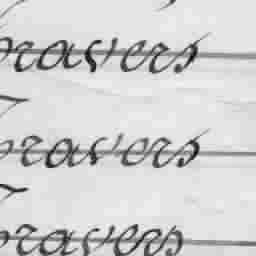 Travers
Travers
Travers